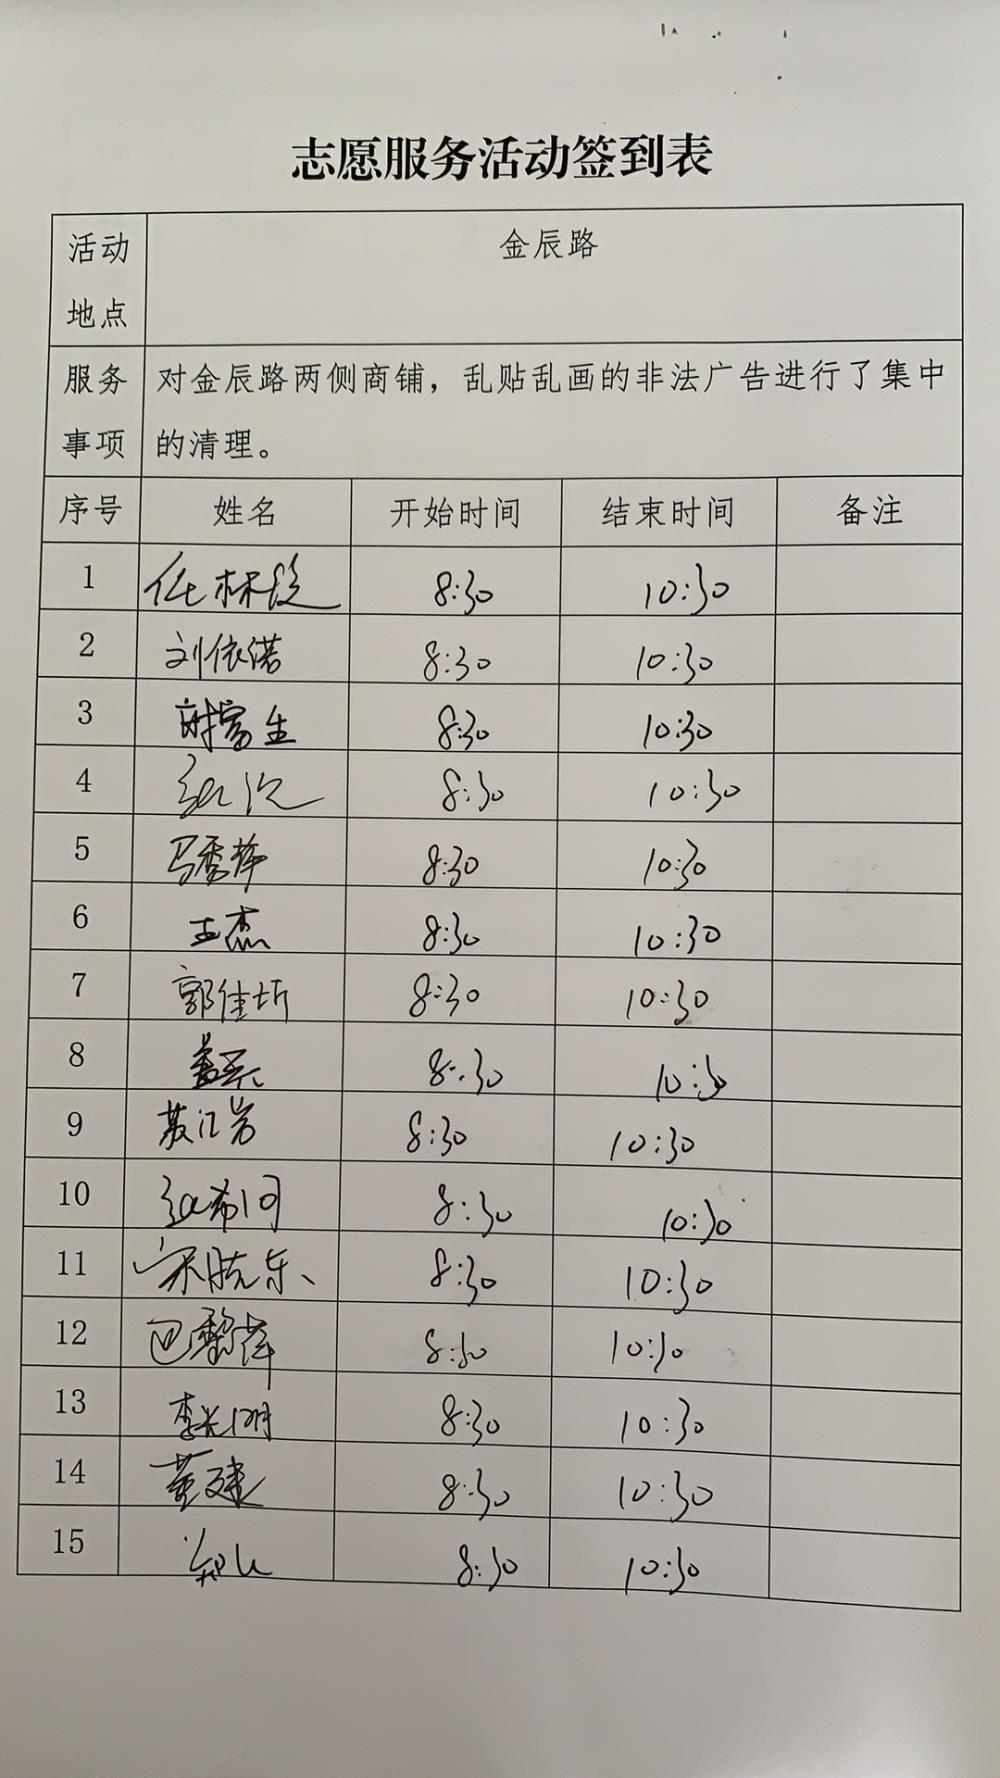 志愿服务活动签到表
活动地点 金辰路
服务事项 对金辰路两侧商铺，乱贴乱画的非法广告进行了集中
的清理。
序号 姓名 开始时间 结束时间 备注
1 8:30 10:30
2 刘依诺 8:30 10:30
3 谢富生 8:30 10:30
4 8:30 10:30
5 马秀萍 8:30 10:30
6 王杰 8:30 10:30
7 郭佳圻 8:30 10:30
8 8:30 10:30
9 8:30 10:30
10 8:30 10:30
11 宋晓东 8:30 10:30
12 巴黎萍 8:30 10:30
13 李光明 8:30 10:30
14 董建 8:30 10:30
15 8:30 10:30